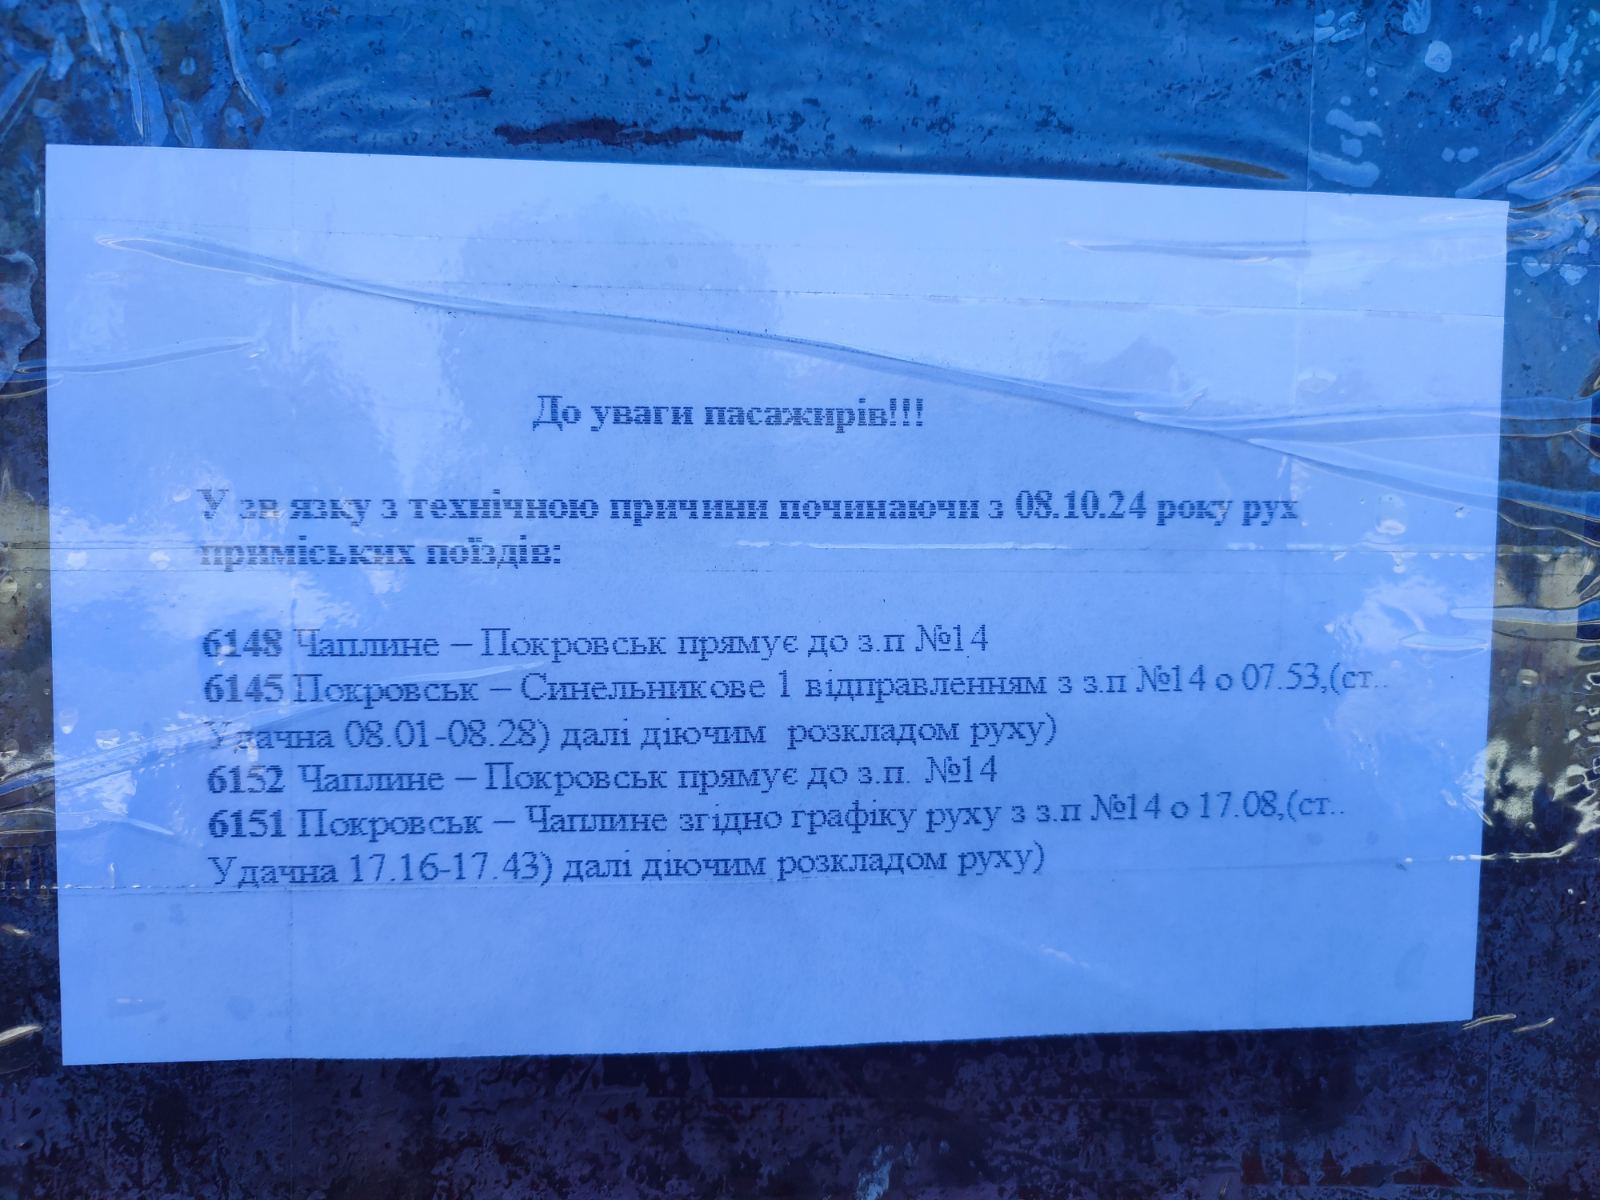 До уваги пасажирів!!!
У зв язку з технічною причини починаючи з 08.10.24 року рух
приміських поїздів:
6148 Чаплине – Покровськ прямує до з.п №14
6145 Покровськ – Синельникове 1 відправленням з з.п №14 о 07.53,(ст..
Удачна 08.01-08.28) далі діючим розкладом руху)
6152 Чаплине – Покровськ прямує до з.п. №14
6151 Покровськ – Чаплине згідно графіку руху з з.п №14 о 17.08,(ст..
Удачна 17.16-17.43) далі діючим розкладом руху)